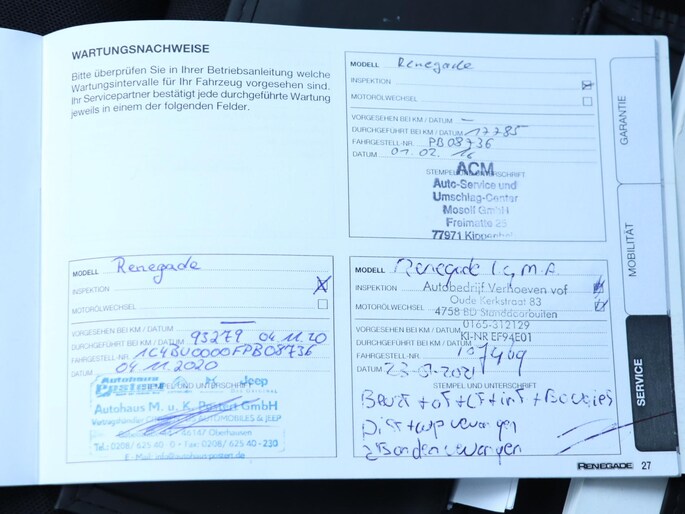 WARTUNGSNACHWEISE
Bitte überprüfen Sie in Ihrer Betriebsanleitung welche
Wartungsintervalle für Ihr Fahrzeug vorgesehen sind.
Ihr Servicepartner bestätigt jede durchgeführte Wartung
jeweils in einem der folgenden Felder.
MODELL Renegade
INSPEKTION
MOTORÖLWECHSEL
VORGESEHEN BEI KM / DATUM –
DURCHGEFÜHRT BEI KM / DATUM 17785
FAHRGESTELL-NR. PB08736
DATUM 01.02.16
STEMPEL UND UNTERSCHRIFT
ACM
Auto-Service und
Umschlag-Center
Mosolf GmbH
Freimatte 25
77971 Kippenheim
MODELL Renegade
INSPEKTION
MOTORÖLWECHSEL
VORGESEHEN BEI KM / DATUM —
DURCHGEFÜHRT BEI KM / DATUM 93279 04.11.20
FAHRGESTELL-NR. 1C4BU0000FPB08736
DATUM 04.11.2020
STEMPEL UND UNTERSCHRIFT
Autohaus Jeep
Autohaus M. u. K. GmbH
AUTOMOBILES & JEEP
46147 Oberhausen
Tel.: 0208/ 625 40 0 • Fax: 0208/ 625 40 - 230
MODELL Renegade
INSPEKTION
MOTORÖLWECHSEL
Autobedrijf Verhoeven vof
Oude Kerkstraat 83
4758 BD Standdaarbuiten
0165-312129
KI-NR EF94E01
VORGESEHEN BEI KM / DATUM
DURCHGEFÜHRT BEI KM / DATUM
FAHRGESTELL-NR. 107469
DATUM
STEMPEL UND UNTERSCHRIFT
GARANTIE
MOBILITÄT
SERVICE
RENEGADE 27